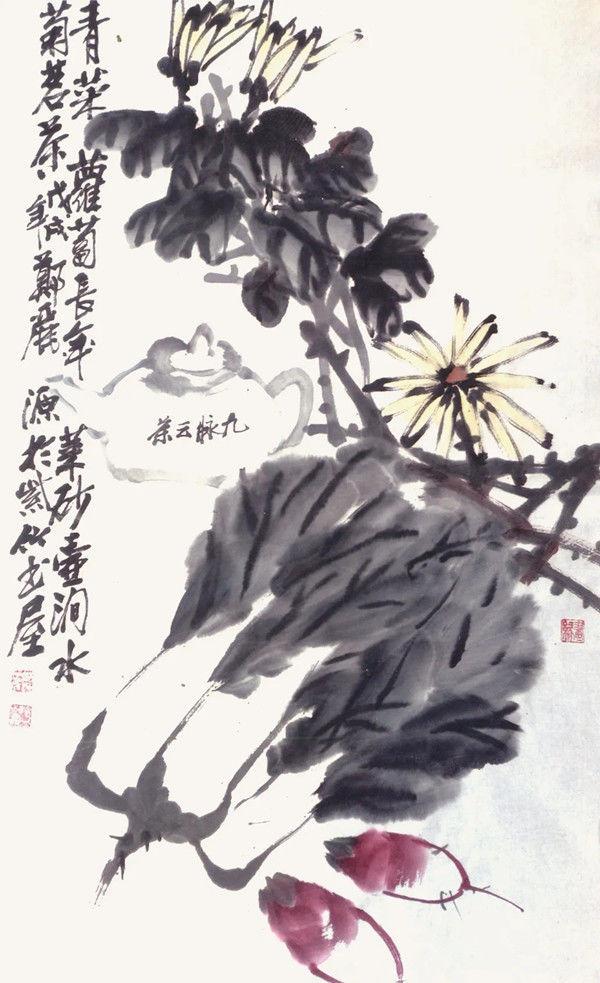 青菜蘿蔔長年菜砂壺澗水
菊茗茶戊戌年鄭麗源於紫竹书屋
九脉云茶